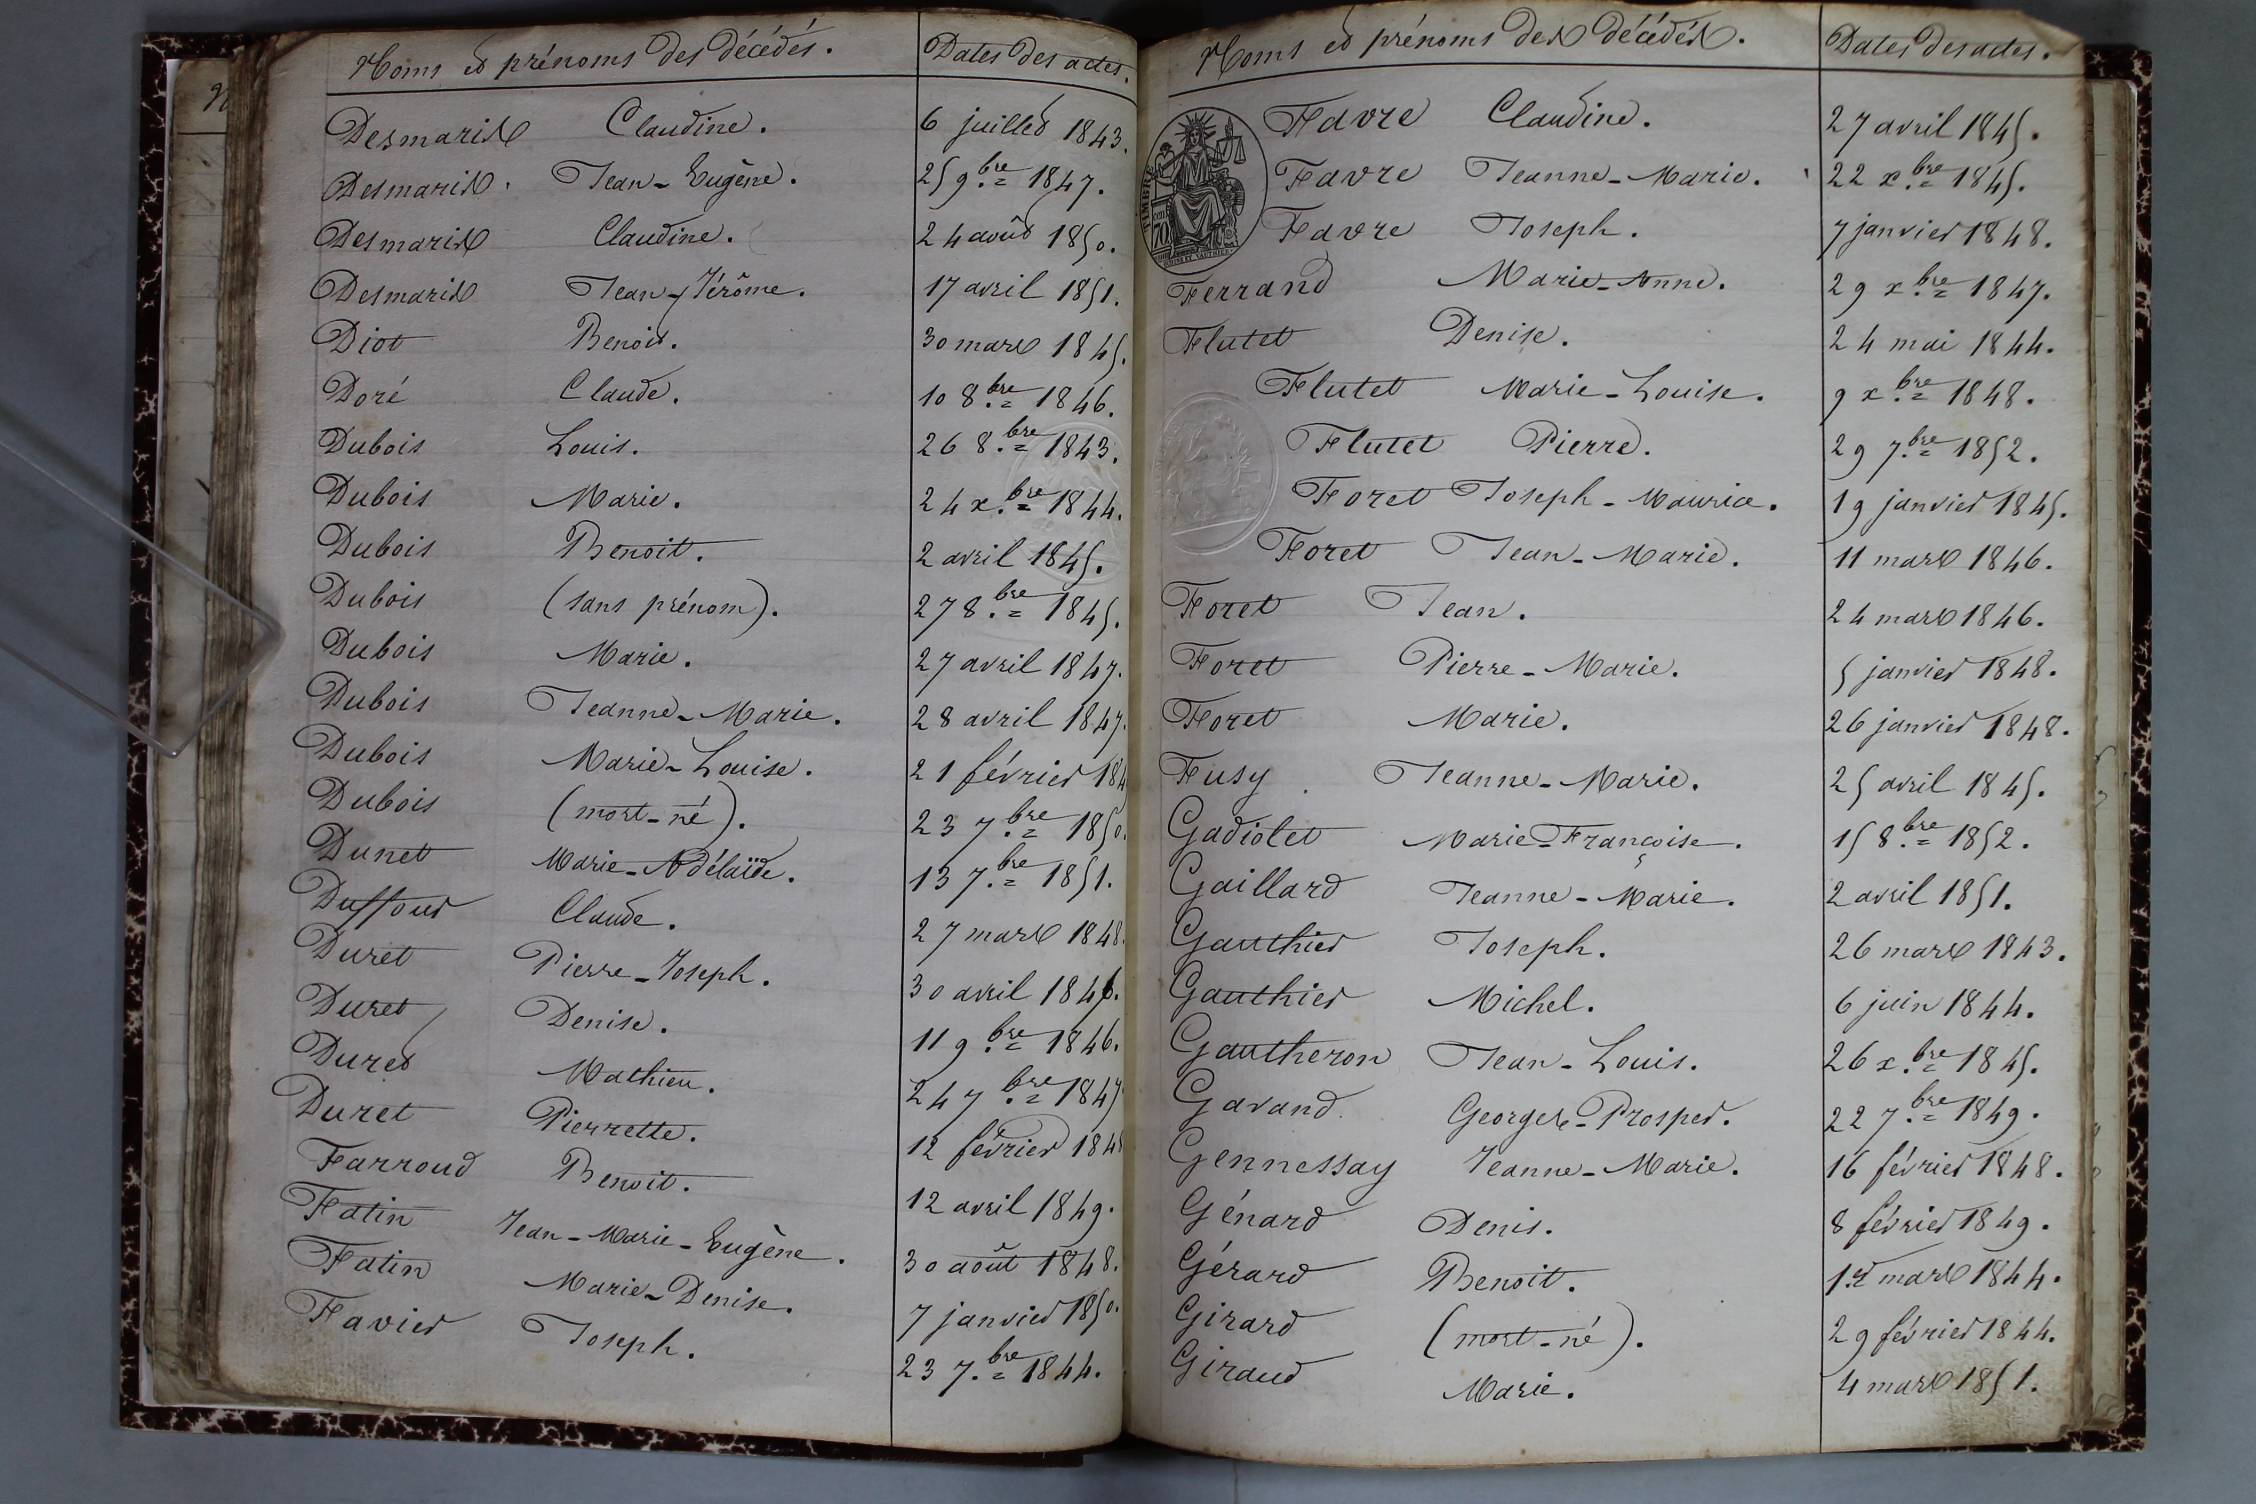 Noms et prénoms des décédés. Dates des actes.
Desmaris Claudine. 6 juillet 1843.
Desmaris. Jean-Eugène. 25 9.bre 1847.
Desmaris Claudine. 24 août 1850.
Desmaris Jean-Jérôme. 17 avril 1851.
Diot Benoit. 30 mars 1845.
Doré Claude. 10 8.bre 1846.
Dubois Louis. 26 8.bre 1843.
Dubois Marie. 24 x.bre 1844.
Dubois Benoit. 2 avril 1845.
Dubois (sans prénom). 27 8.bre 1845.
Dubois Marie. 27 avril 1847.
Dubois Jeanne-Marie. 28 avril 1847.
Dubois Marie-Louise. 21 février 184
Dubois (mort-né). 23 7.bre 1850.
Dunet Marie-Adélaïde. 13 7.bre 1851.
Duffour Claude. 27 mars 1848.
Duret Pierre-Joseph. 30 avril 1846.
Duret Denise. 11 9.bre 1846.
Duret Mathieu. 24 7.bre 1847
Duret Pierrette. 12 février 184
Farroud Benoit. 12 avril 1849.
Fatin Jean-Marie-Eugène. 30 août 1848.
Fatin Marie-Denise. 7 janvier 1850.
Favier Joseph. 23 7.bre 1844.
Noms et prénoms des décédés. Dates des actes.
Favre Claudine. 27 avril 1845.
Favre Jeanne-Marie. 22 x.bre 1845.
Favre Joseph. 7 janvier 1848.
Ferrand Marie-Anne. 29 x.bre 1847.
Flutet Denise. 24 mai 1844.
Flutet Marie-Louise. 9 x.bre 1848.
Flutet Pierre. 29 7.bre 1852.
Foret Joseph-Maurice. 19 janvier 1845.
Foret Jean-Marie. 11 mars 1846.
Foret Jean. 24 mars 1846.
Foret Pierre-Marie. 5 janvier 1848.
Foret Marie. 26 janvier 1848.
Fusy Jeanne-Marie. 25 avril 1845.
Gadiolet Marie-Françoise. 15 8.bre 1852.
Gaillard Jeanne-Marie. 2 avril 1851.
Gauthier Joseph. 26 mars 1843.
Gauthier Michel. 6 juin 1844.
Gautheron Jean-Louis. 26 x.bre 1845.
Gavand Georges-Prosper. 22 7.bre 1849.
Gennessay Jeanne-Marie. 16 février 1848.
Génard Denis. 8 février 1849.
Gérard Benoit. 1.er mars 1844.
Girard (mort-né). 29 février 1844.
Giraud Marie. 4 mars 1851.
TIMBRE
70